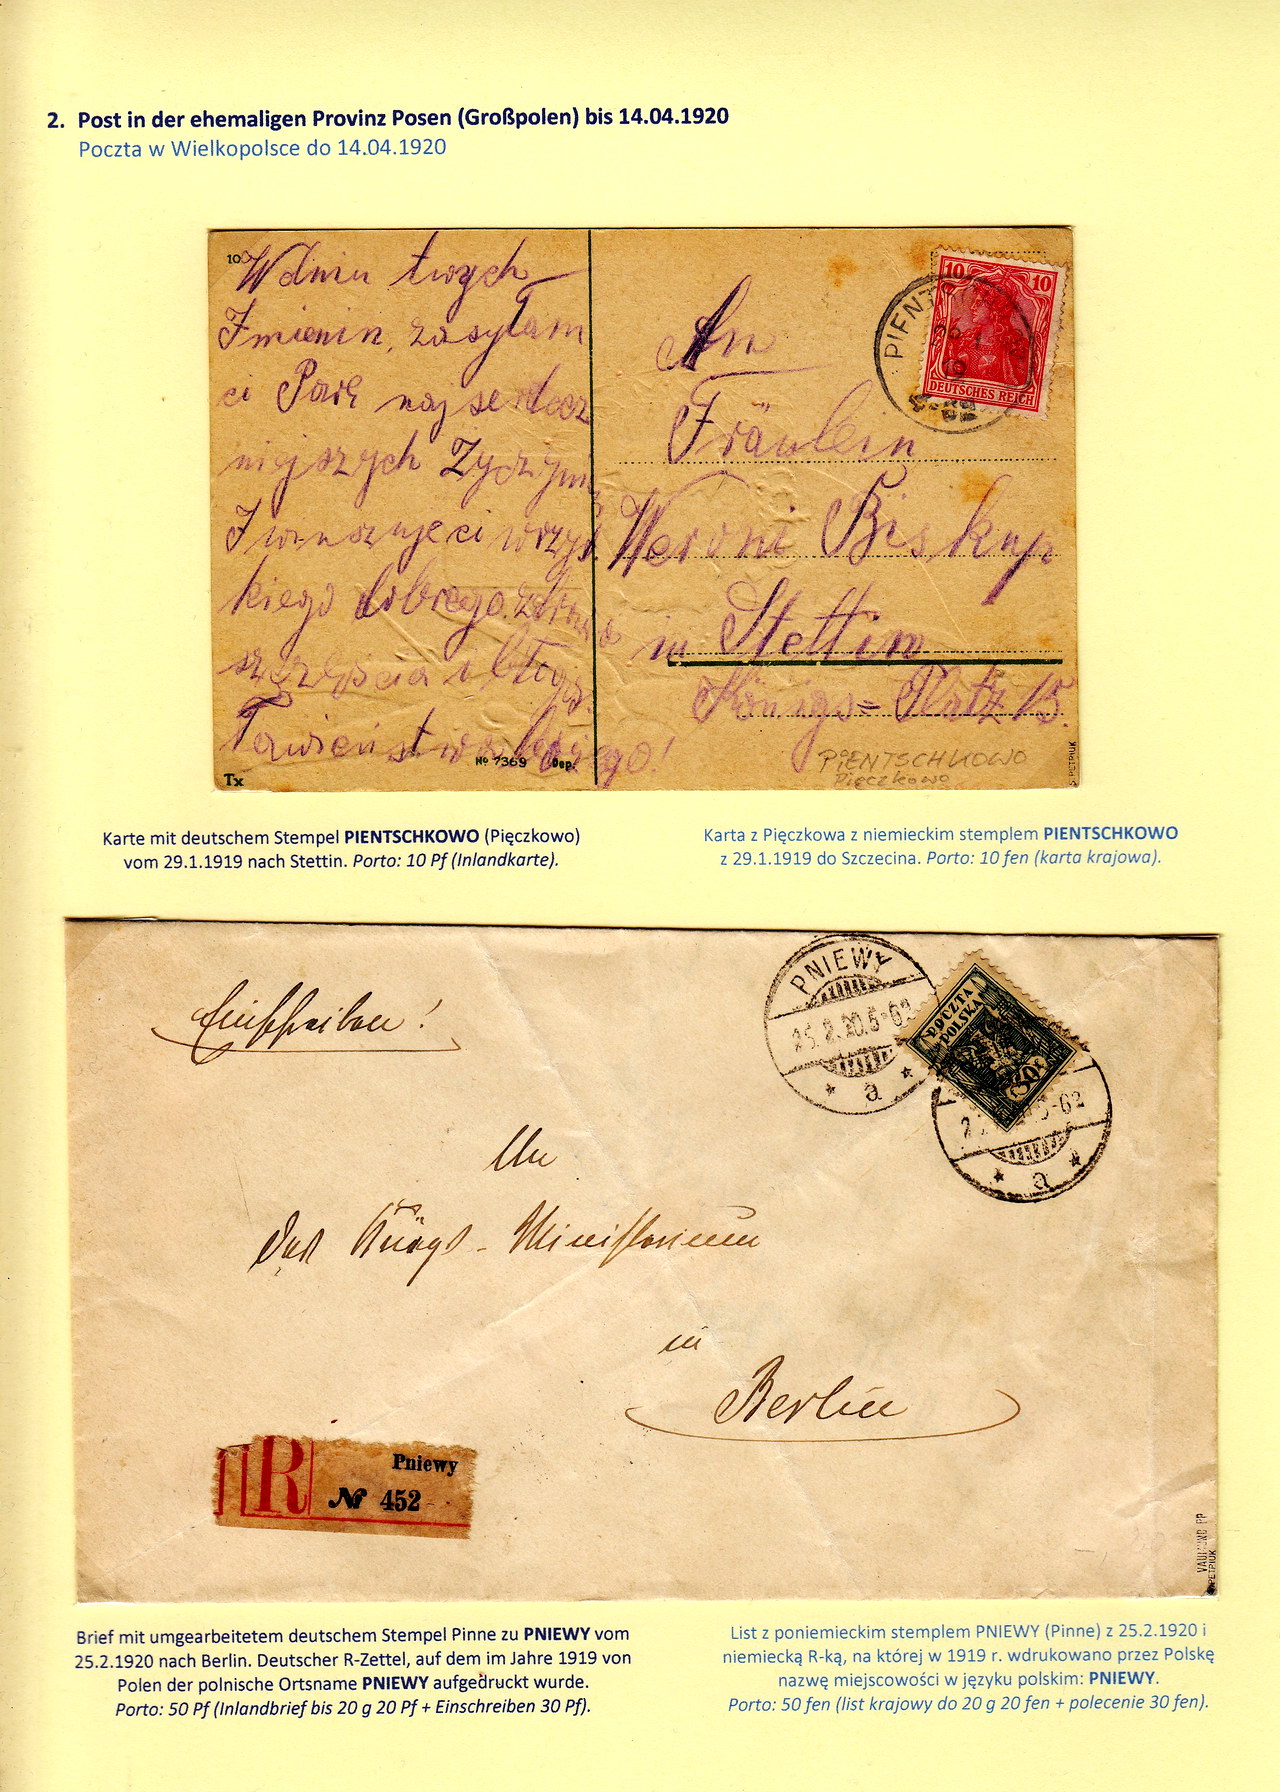 2. Post in der ehemaligen Provinz Posen (Großpolen) bis 14.04.1920
Poczta w Wielkopolsce do 14.04.1920
10
W dniu twych
Imienin, zasyłam
ci Parę najserdecz
niejszych Zyczyn
I winszuje ci wszys
kiego dobrego. zdrow
szczęścia i błogo
Tawieństwa
No 7369 Dep.
Tx
10 10
DEUTSCHES REICH
An
Fräulein
Weroni Biskup
in Stettin
Königs=Platz 15.
PIENTSCHKOWO
Pięczkowo
S. PETRIUK
Karte mit deutschem Stempel PIENTSCHKOWO (Pięczkowo)
vom 29.1.1919 nach Stettin. Porto: 10 Pf (Inlandkarte).
Karta z Pięczkowa z niemieckim stemplem PIENTSCHKOWO
z 29.1.1919 do Szczecina. Porto: 10 fen (karta krajowa).
Einschreiben!
PNIEWY
25.2.20.5-6N
* a *
POCZTA
POLSKA
5-6N
* a *
An
das Kriegs-Ministerium
in
Berlin
R
Pniewy
No 452
VALMUND PP
S. PETRIUK
Brief mit umgearbeitetem deutschem Stempel Pinne zu PNIEWY vom
25.2.1920 nach Berlin. Deutscher R-Zettel, auf dem im Jahre 1919 von
Polen der polnische Ortsname PNIEWY aufgedruckt wurde.
Porto: 50 Pf (Inlandbrief bis 20 g 20 Pf + Einschreiben 30 Pf).
List z poniemieckim stemplem PNIEWY (Pinne) z 25.2.1920 i
niemiecką R-ką, na której w 1919 r. wdrukowano przez Polskę
nazwę miejscowości w języku polskim: PNIEWY.
Porto: 50 fen (list krajowy do 20 g 20 fen + polecenie 30 fen).